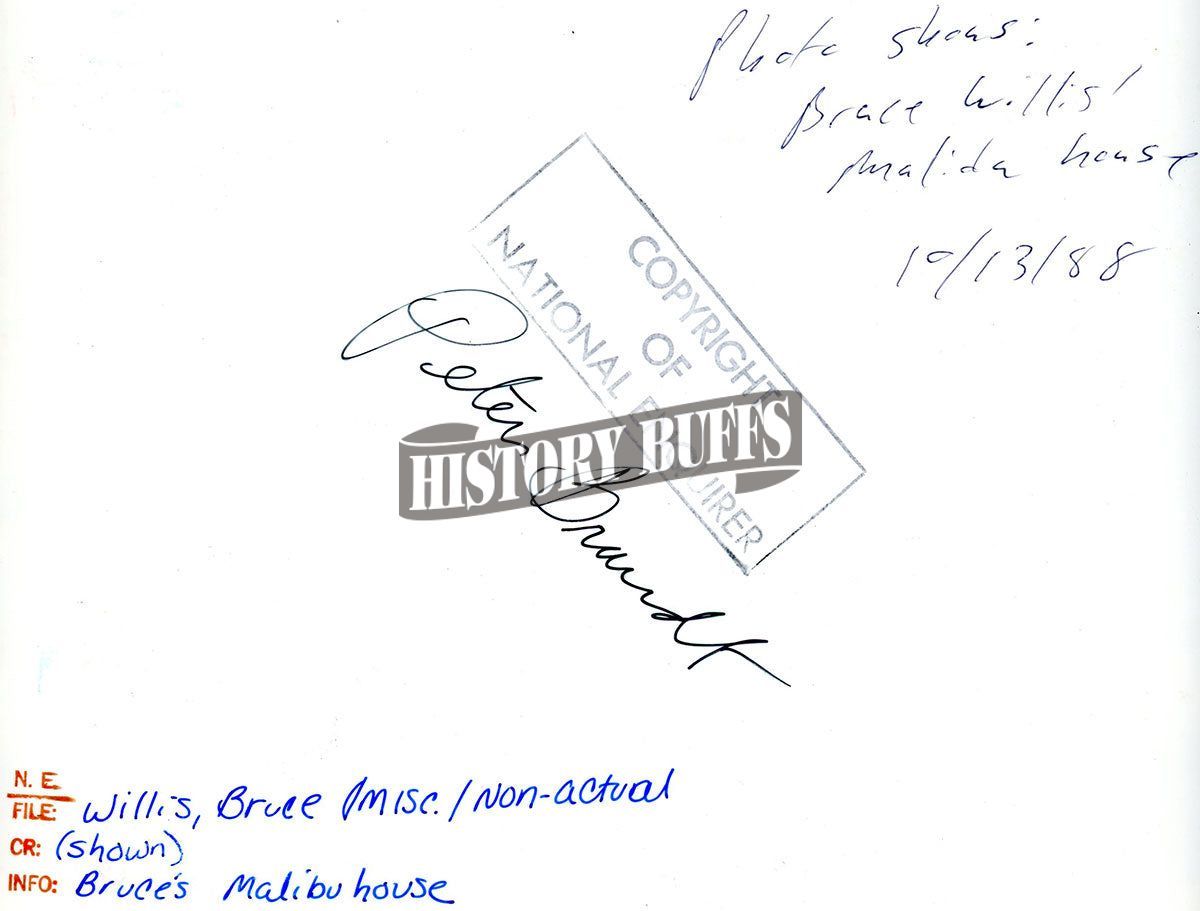 Photo shows:
Bruce Willis'
house
10/13/88
COPYRIGHT
OF
NATIONAL ENQUIRER
Peter Brandt
HISTORY BUFFS
N. E.
FILE: Willis, Bruce /Misc./Non-actual
CR: (shown)
INFO: Bruce's Malibu house